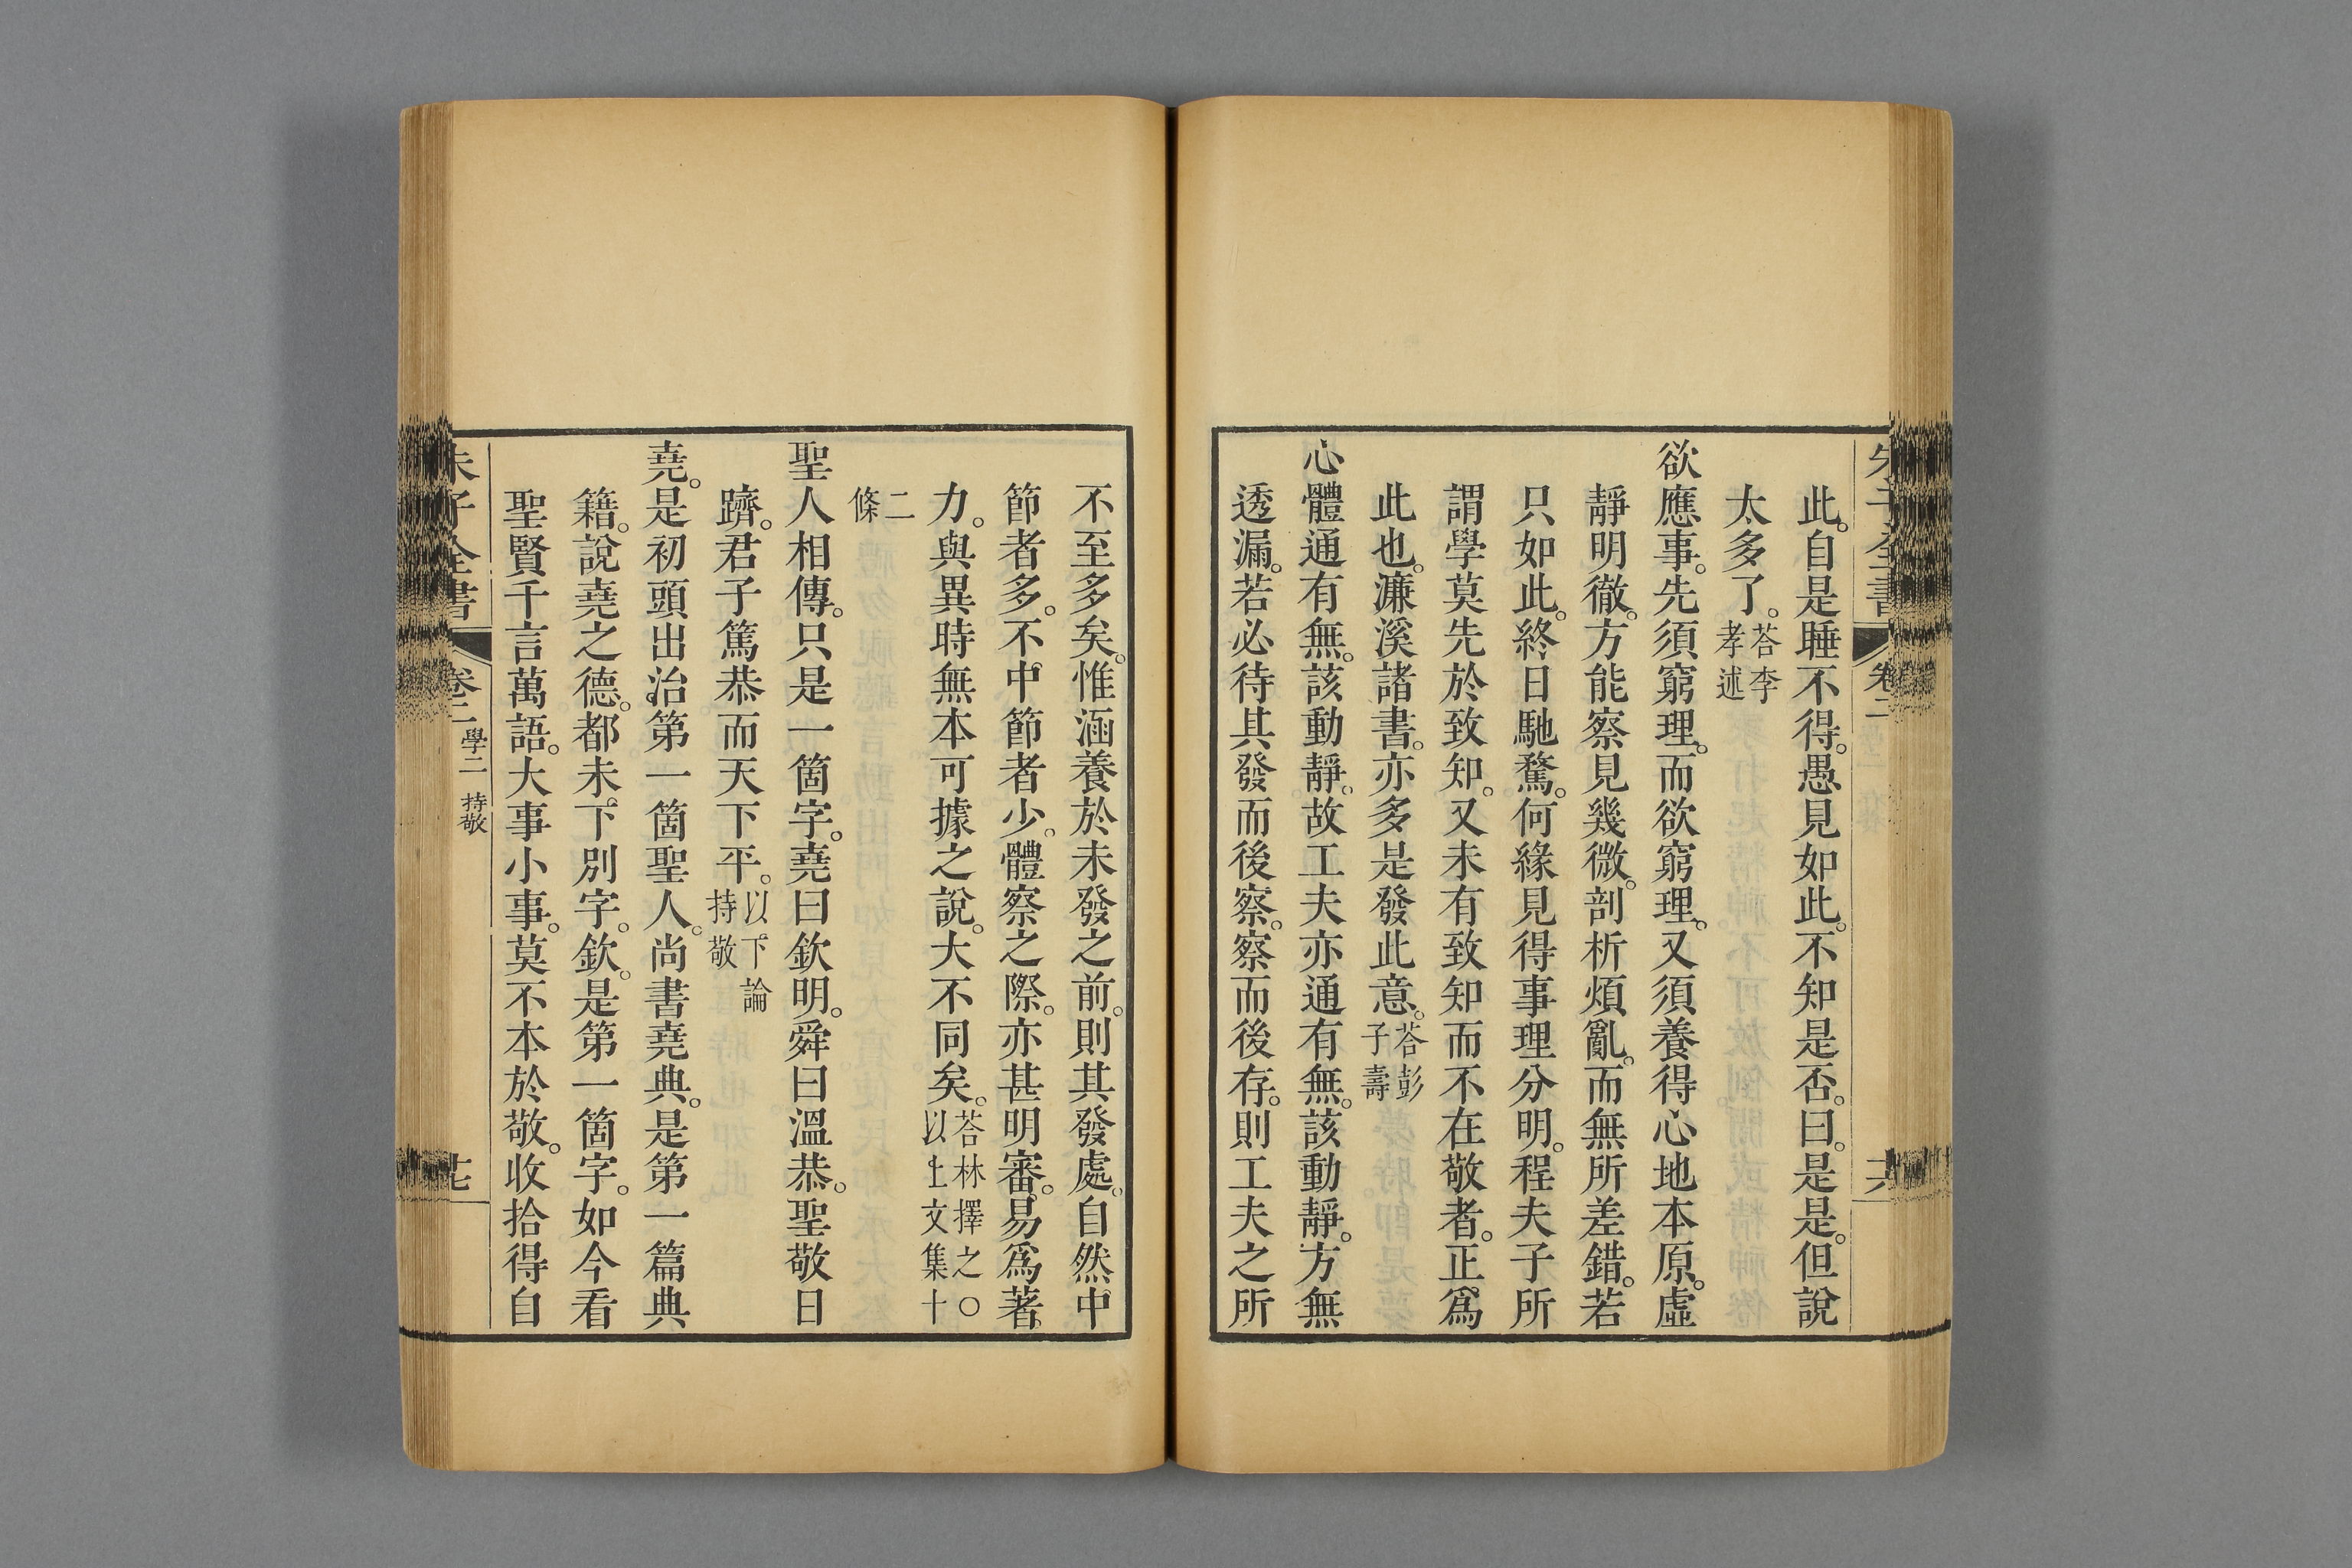 朱子全書 卷二 六
此。自是睡不得。愚見如此。不知是否。曰。是是。但說
太多了。荅李孝述
欲應事。先須窮理。而欲窮理。又須養得心地本原。虛
靜明徹。方能察見幾微。剖析煩亂。而無所差錯。若
只如此。終日馳騖。何緣見得事理分明。程夫子所
謂學莫先於致知。又未有致知而不在敬者。正爲
此也。濂溪諸書。亦多是發此意。荅彭子壽
心體通有無。該動靜。故工夫亦通有無。該動靜。方無
透漏。若必待其發而後察。察而後存。則工夫之所
不至多矣。惟涵養於未發之前。則其發處。自然中
節者多。不中節者少。體察之際。亦甚明審。易爲著
力。與異時無本可據之說。大不同矣。荅林擇之○以上文集十
二條
聖人相傳。只是一箇字。堯曰欽明。舜曰溫恭。聖敬日
躋。君子篤恭而天下平。以下論持敬
堯。是初頭出治第一箇聖人。尚書堯典。是第一篇典
籍。說堯之德。都未下別字。欽。是第一箇字。如今看
聖賢千言萬語。大事小事。莫不本於敬。收拾得自
朱子全書 卷二 學二 持敬